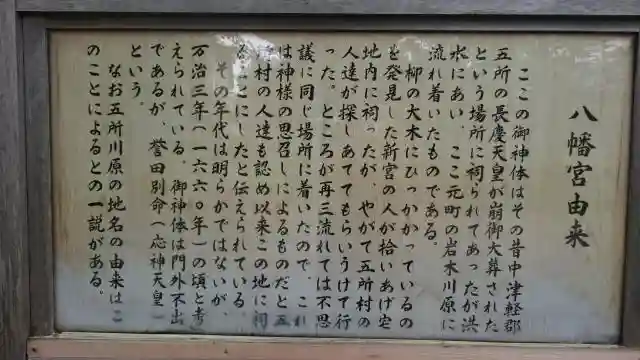 八幡宮由来
ここの御神体はその昔中津軽郡
五所の長慶天皇が崩御大葬された
という場所に祠られてあったが洪
水にあい、ここ元町の岩木川原に
流れ着いたものである。
柳の大木にひっかかっているの
を発見した新宮の人が拾いあげ宅
地内に祠ったが、やがて五所村の
人達が探しあててもらいうけて行
った。ところが再三流れては不思
議に同じ場所に着いたので、これ
は神様の思召しによるものだと五
所村の人達も認め以来この地に祠
ることにしたと伝えられている。
その年代は明らかではないが、
万治三年(一六六〇年)の頃と考
えられている。御神体は門外不出
であるが、誉田別命(応神天皇)
という。
なお五所川原の地名の由来はこ
のことによるとの一説がある。